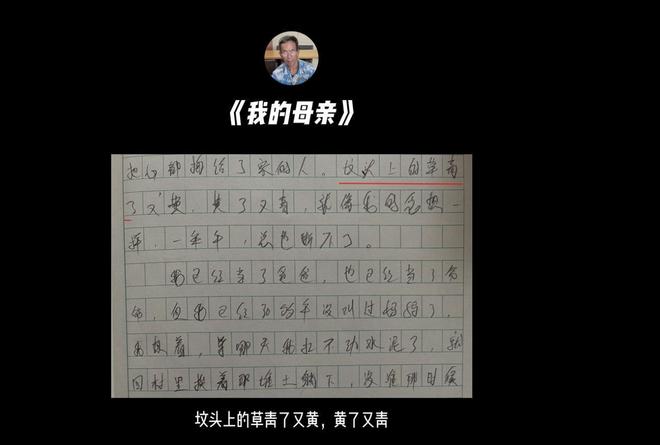 《我的母亲》
把心都掏给了家的人。坟头上的草青
了又黄,黄了又青,就像我的思想一
样,一年年,总也断不了。
我已经当了爸爸,也已经当了爷
爷,但我已经30多年没叫过妈妈了,
我想着,等哪天我扛不动水泥了,就
回村里挨着那堆土躺下,没准那时候
坟头上的草青了又黄,黄了又青